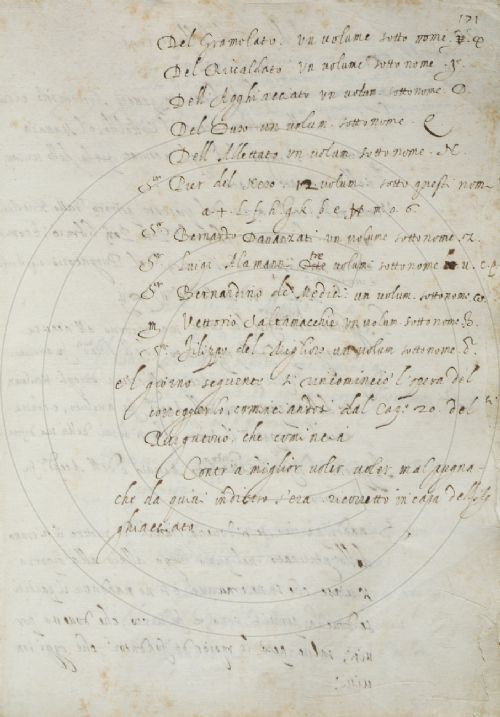 171
Del Gramolato. un volume sotto nome
Del Ricaldato un volume sotto nome. y.
Dell Agghiacciato un volum. sottonome. D.
Del Duro un volum. sottonome. C
Dell' Allettato un volum. sottonome. N.
Sr. Pier del Nero 12 volumi sotto questi nomi
a + l f h g k b e m a 6.
Sr. Bernardo Davanzati un volume sottonome. z.
Sr. Luigi Alamanni tre volumi sottonome u. c. p.
Sr. Bernardino de' Medici. un volum. sottonome
m. Vettorio Saltamacchie un volum. sottonome.
Sr. Filippo del Migliore un volum. sottonome.
e'l giorno seguente si rincominciò l'opera del
correggerlo, come andò dal Cap. 20. del
Purgatorio, che comincia
Contr' a miglior voler voler mal pugna
che da quivi indietro s'era ricorretto in casa dello
ghiacciato.